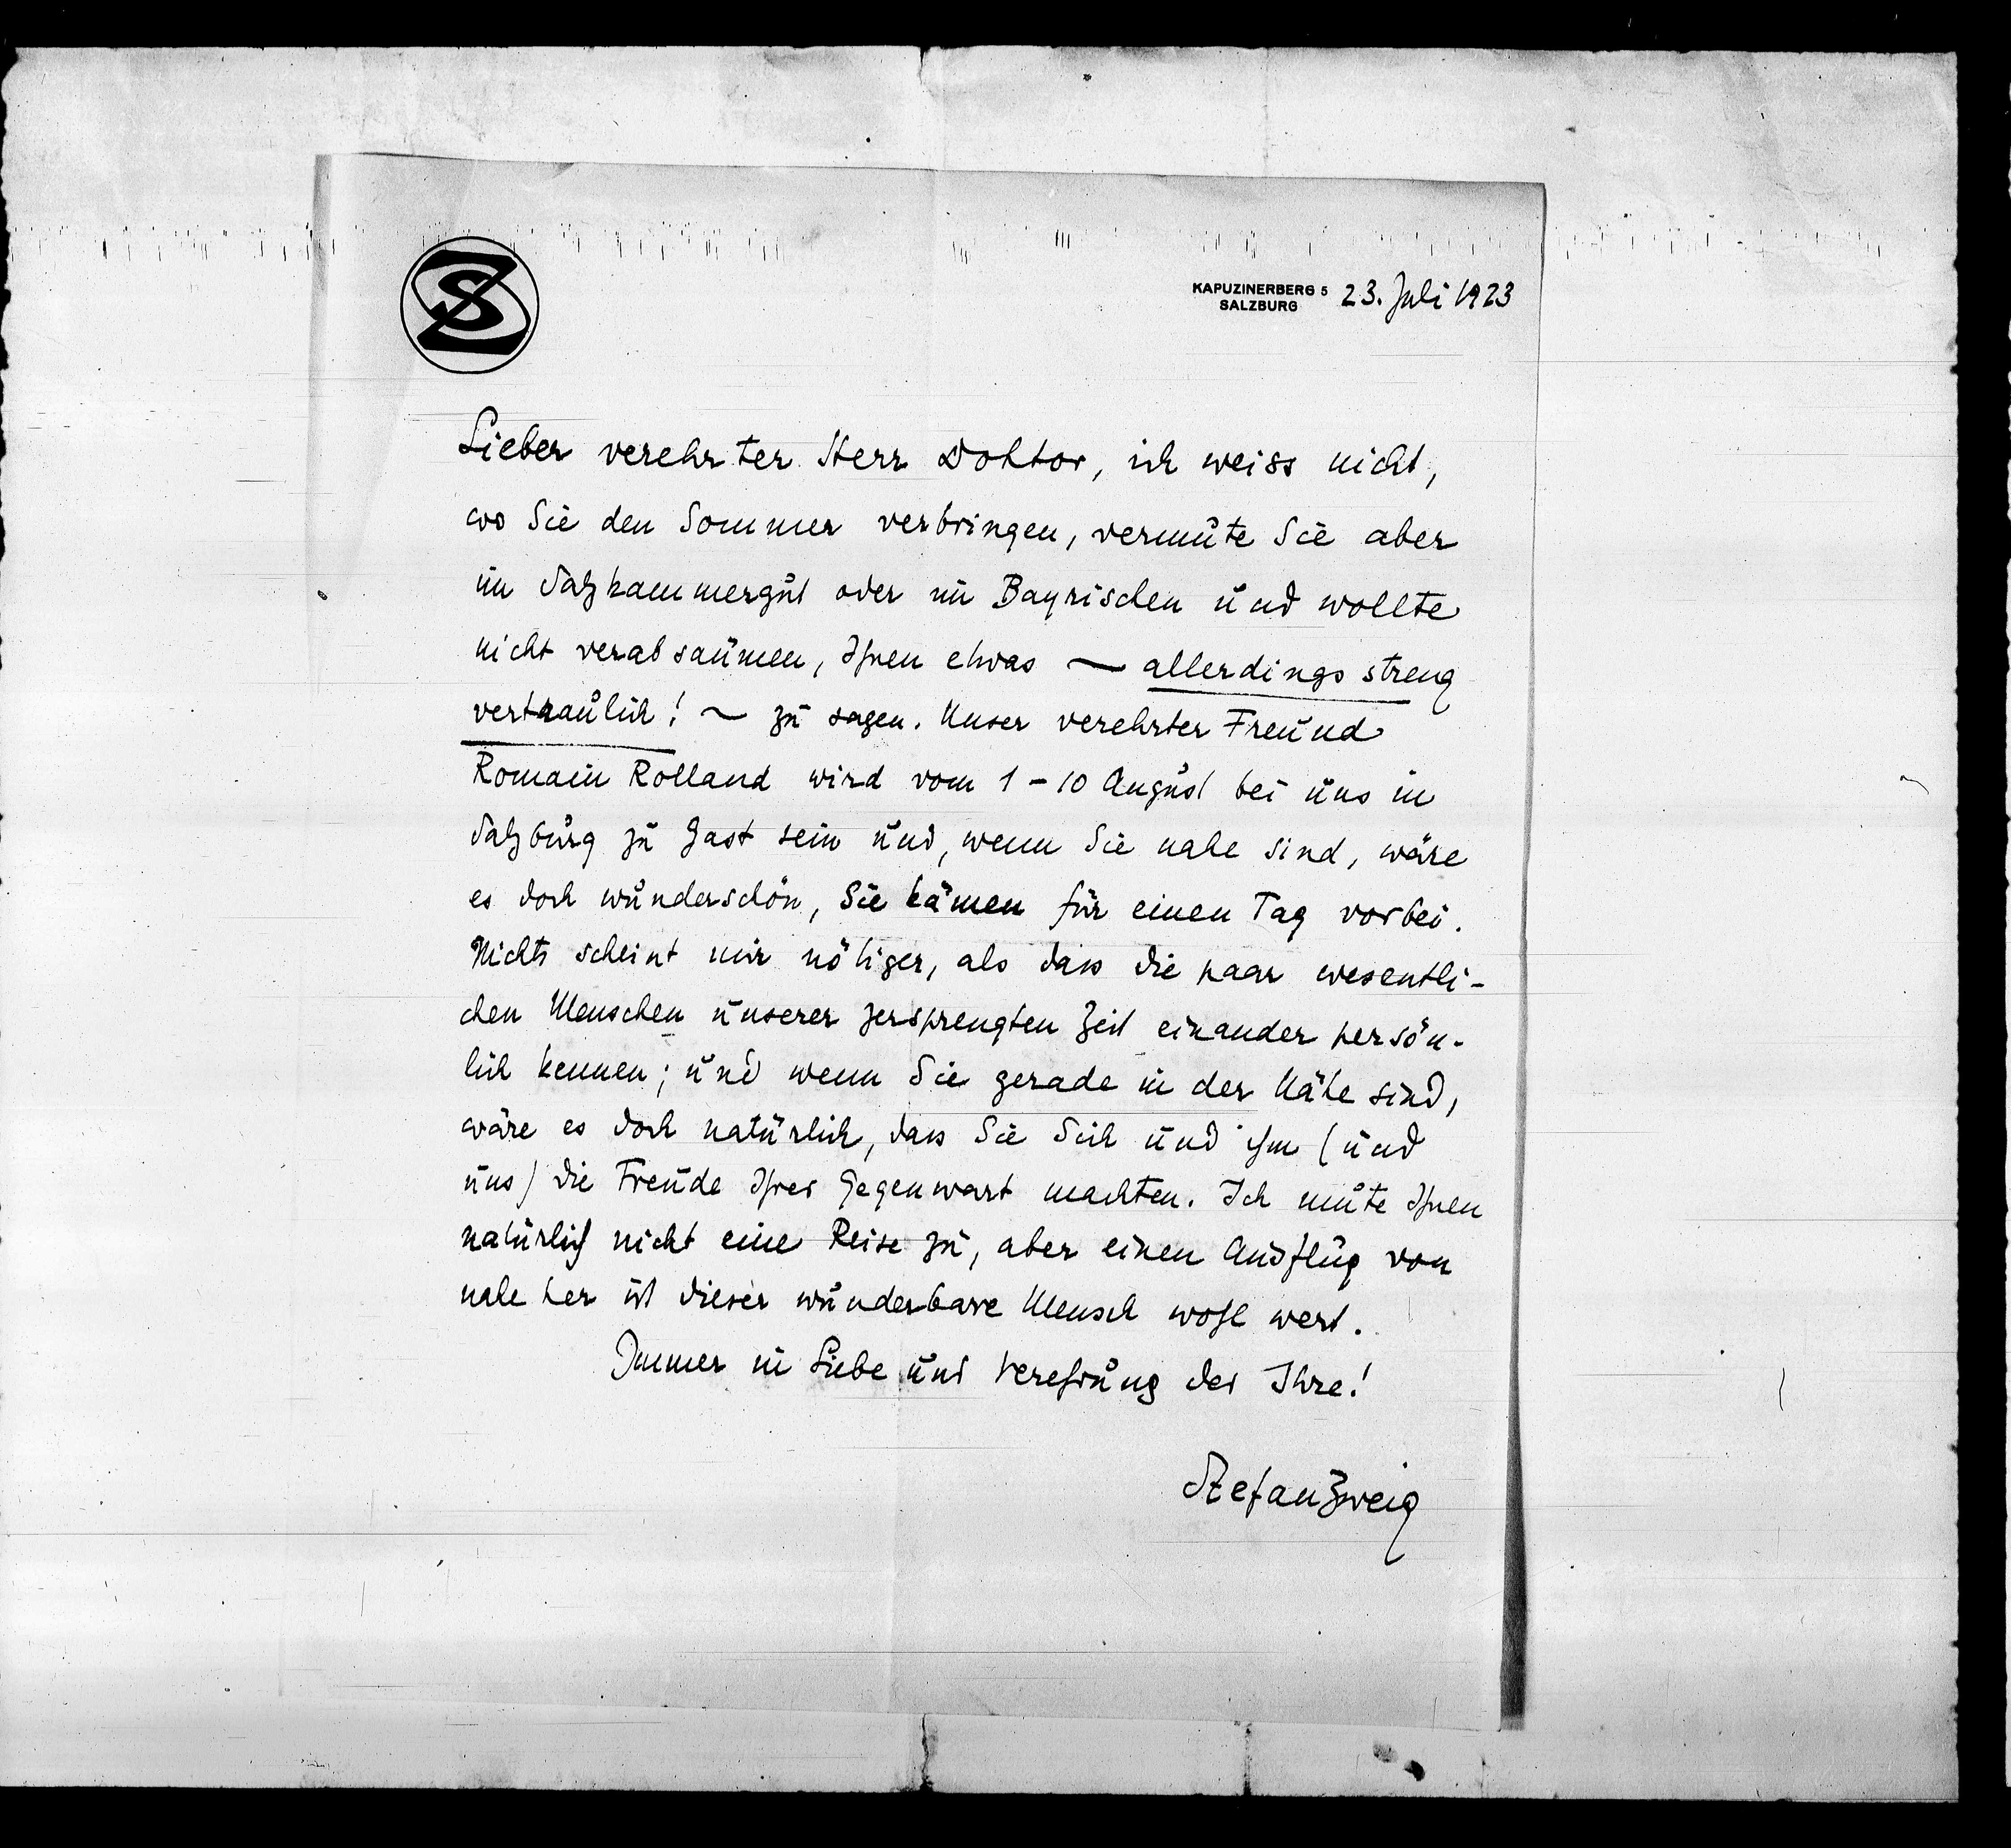 SZ
KAPUZINERBERG 5
SALZBURG
23. Juli 1923
Lieber verehrter Herr Doktor, ich weiss nicht,
wo Sie den Sommer verbringen, vermute Sie aber
im Salzkammergut oder im Bayrischen und wollte
nicht verabsäumen, Ihnen etwas — allerdings streng
vertraulich! — zu sagen. Unser verehrter Freund
Romain Rolland wird vom 1 - 10 August bei uns in
Salzburg zu Gast sein und, wenn Sie nahe sind, wäre
es doch wunderschön, Sie kämen für einen Tag vorbei.
Nichts scheint mir nötiger, als dass die paar wesentli-
chen Menschen unserer zersprengten Zeit einander persön-
lich kennen; und wenn Sie gerade in der Nähe sind,
wäre es doch natürlich, dass Sie Sich und ihm (und
uns) die Freude Ihrer Gegenwart machten. Ich mute Ihnen
natürlich nicht eine Reise zu, aber einen Ausflug von
nahe her ist dieser wunderbare Mensch wohl wert.
Immer in Liebe und Verehrung der Ihre!
Stefan Zweig